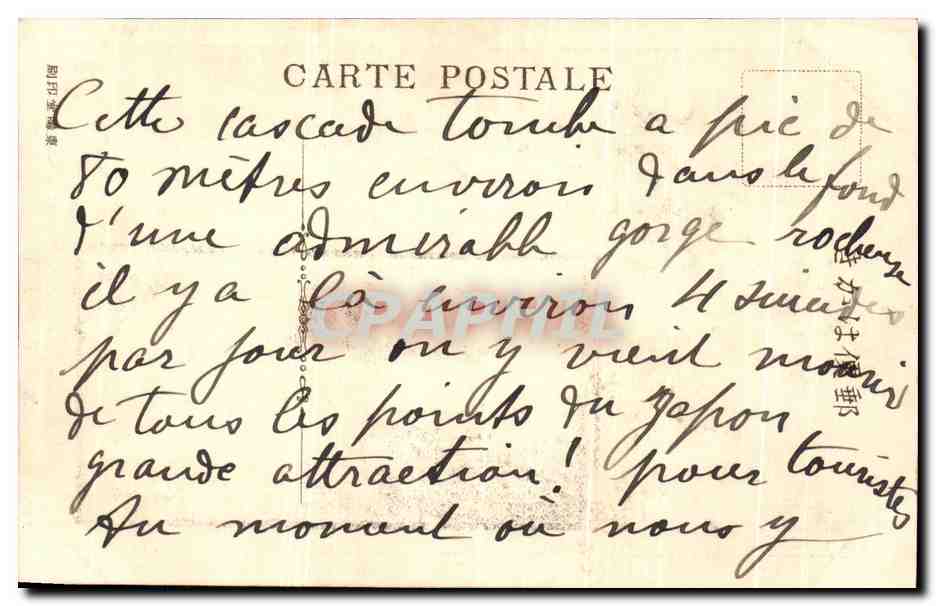 CARTE POSTALE
Cette cascade tombe a pic de
80 mètres environ dans le fond
d'une admirable gorge rocheuse
il y a là environ 4 suicides
par jour on y vient mourir
de tous les points du Japon
grande attraction! pour touristes
Au moment où nous y
きかは便郵
CPAPHIL